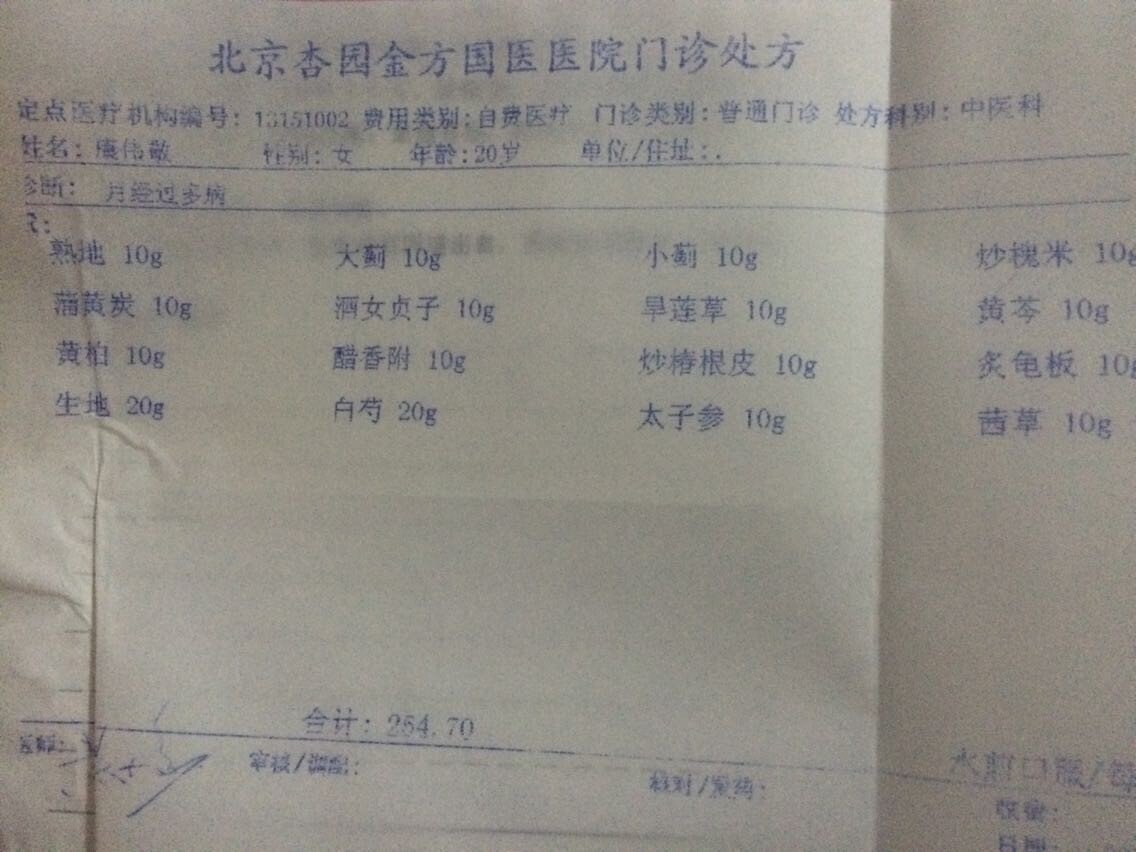 北京杏园金方国医医院门诊处方
定点医疗机构编号: 13151002 费用类别:自费医疗 门诊类别:普通门诊 处方科别:中医科
姓名:康伟敬 性别:女 年龄:20岁 单位/住址:.
诊断: 月经过多病
熟地 10g 大蓟 10g 小蓟 10g 炒槐米 10g
蒲黄炭 10g 酒女贞子 10g 旱莲草 10g 黄芩 10g
黄柏 10g 醋香附 10g 炒椿根皮 10g 炙龟板 10g
生地 20g 白芍 20g 太子参 10g 茜草 10g
合计: 254.70
医师: 审核/调配: 核对/发药: 水煎口服/每